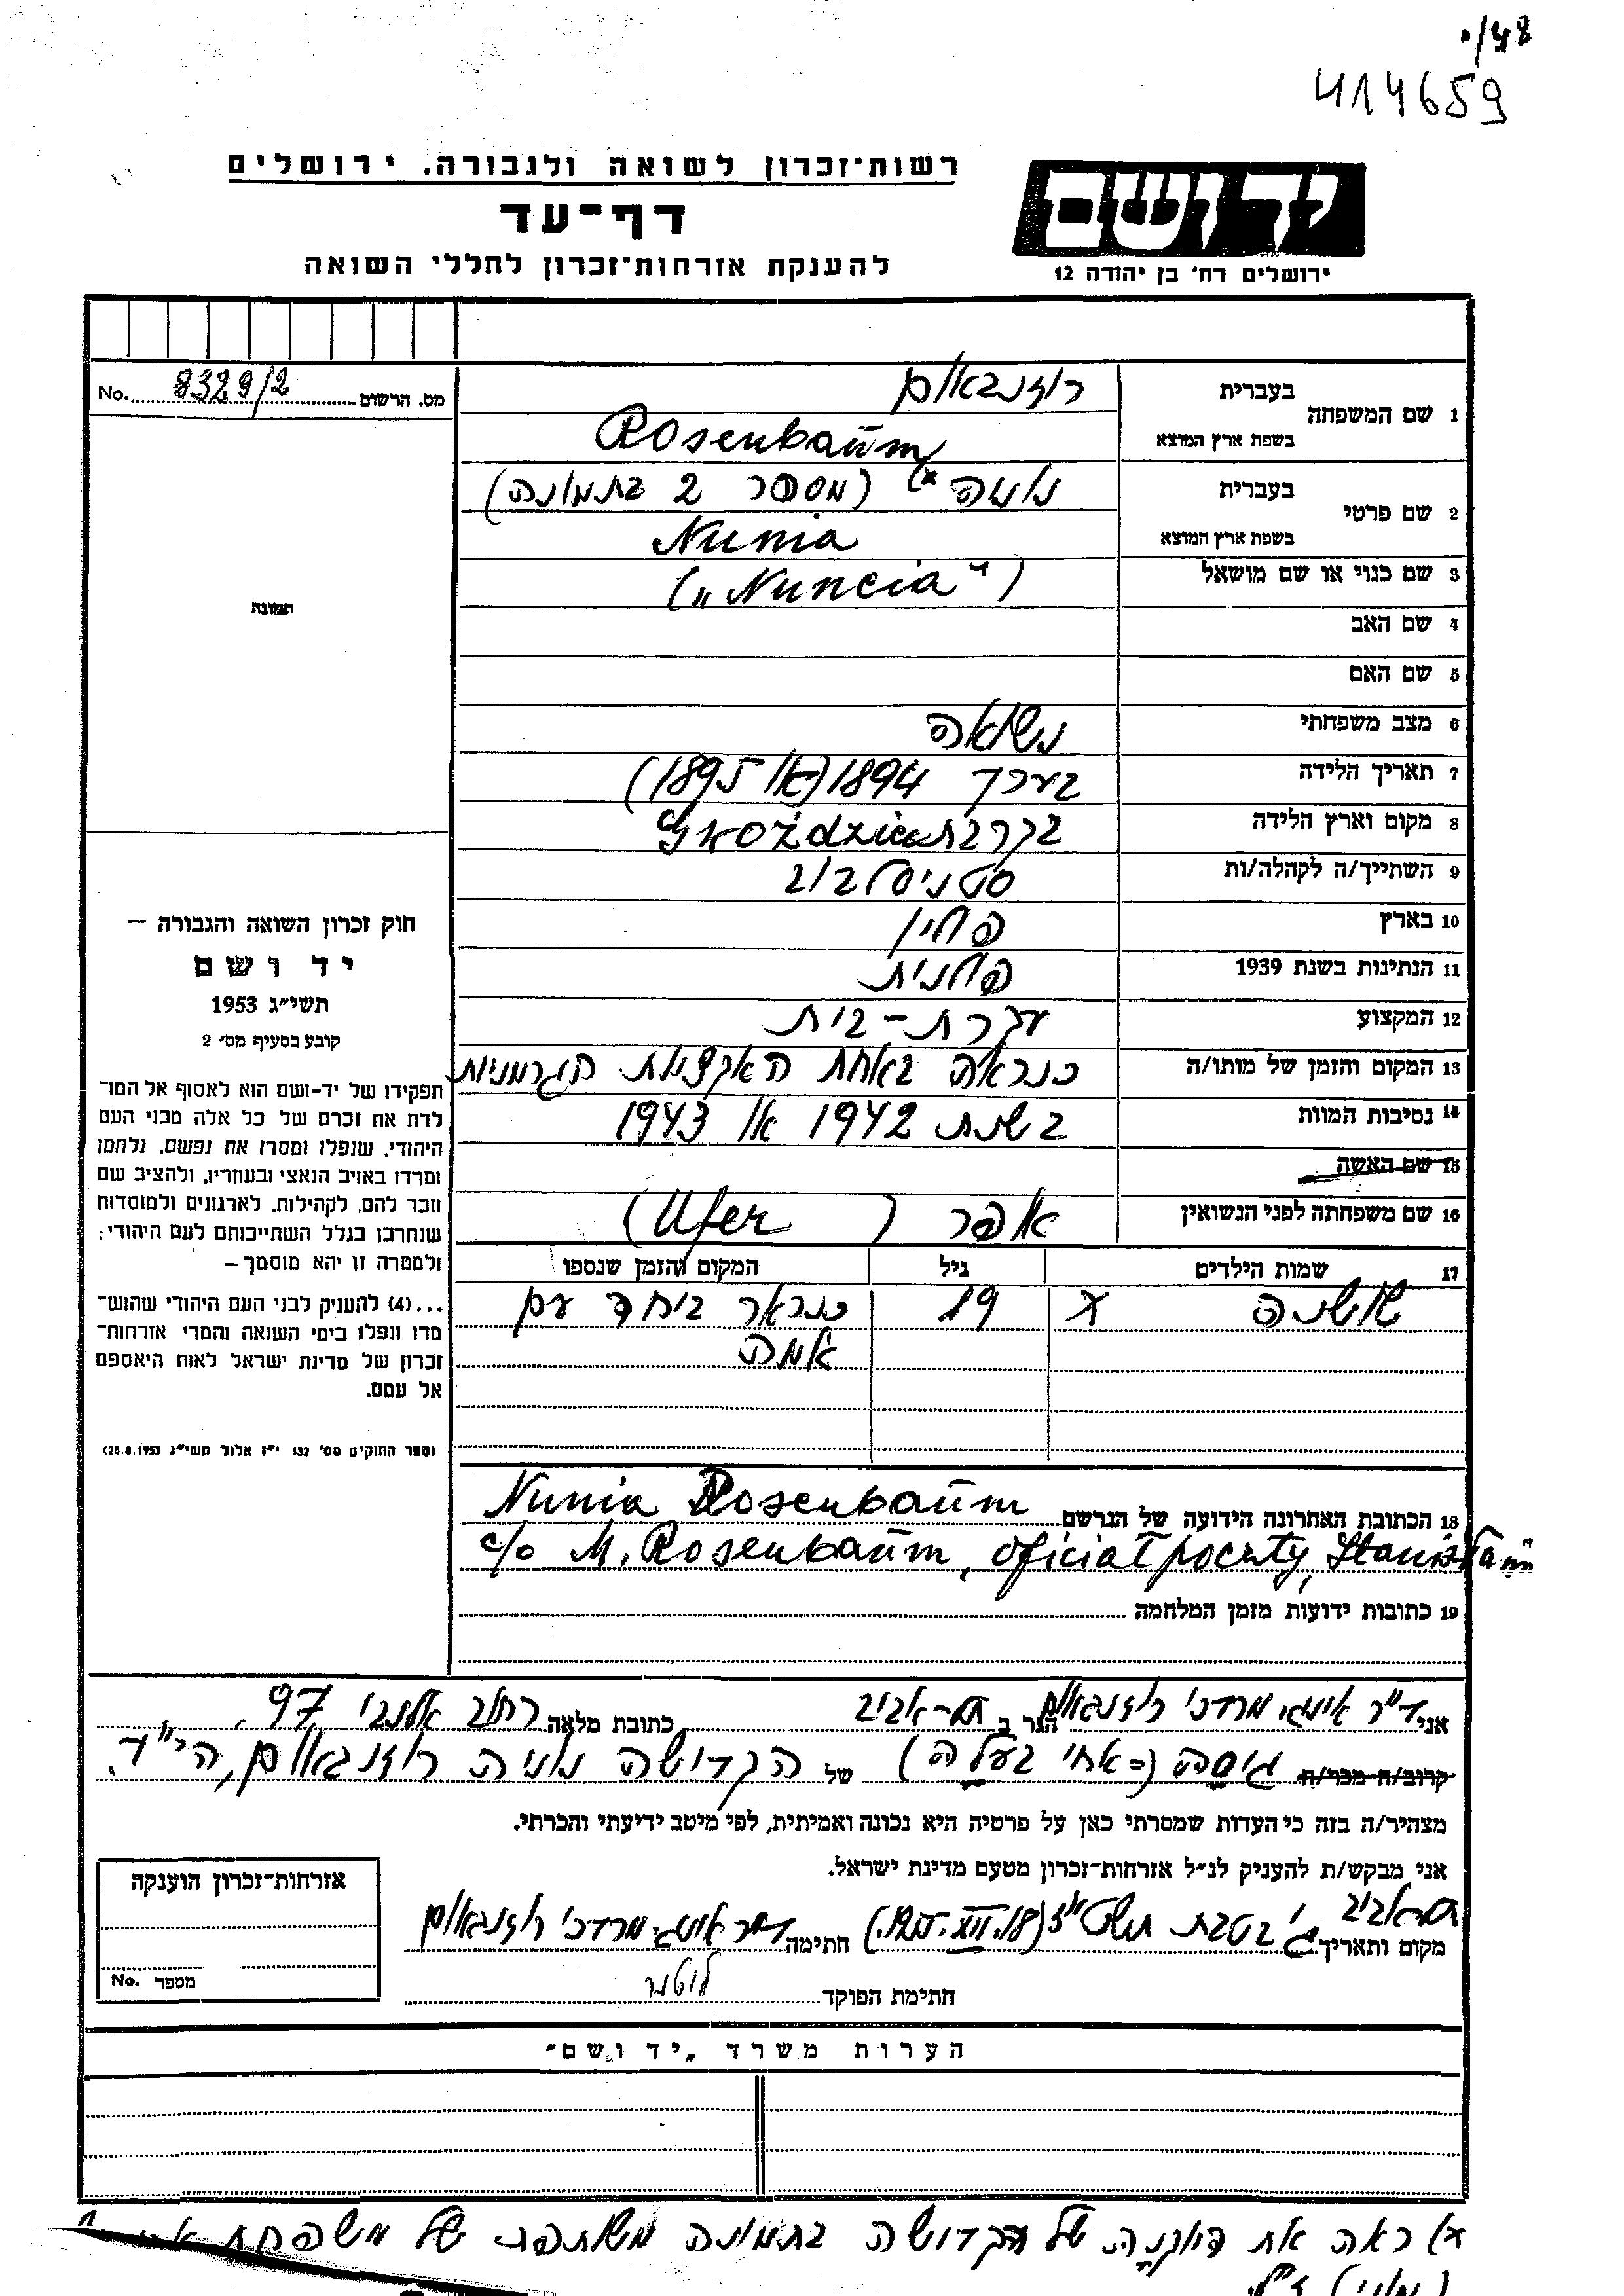 י/48
414659
רשות־זכרון לשואה ולגבורה. ירושלים
דף־עד
להענקת אזרחות־זכרון לחללי השואה
יד ושם
ירושלים רח' בן יהודה 12
מס. הרשום 8329/2 No.
1 שם המשפחה
בעברית רוזנבאום
בשפת ארץ המוצא Rosenbaum
2 שם פרטי
בעברית נוניה x) (מספר 2 בתמונה)
בשפת ארץ המוצא Nunia
3 שם כנוי או שם מושאל („Nuncia“)
4 שם האב
5 שם האם
6 מצב משפחתי נשואה
7 תאריך הלידה בערך 1894 (או 1895)
8 מקום וארץ הלידה בקרבת Gwoździec
9 השתייך/ה לקהלה/ות סטניסלבוב
10 בארץ פולין
11 הנתינות בשנת 1939 פולנית
12 המקצוע עקרת-בית
13 המקום והזמן של מותו/ה כנראה באחת האקציות הגרמניות
14 נסיבות המוות בשנת 1942 או 1943
15 שם האשה
16 שם משפחתה לפני הנשואין אופר (Ufer)
17 שמות הילדים גיל המקום והזמן שנספו
שושנה x 19 כנראה ביחד עם
אמה
18 הכתובת האחרונה הידועה של הנרשם Nunia Rosenbaum
c/o M. Rosenbaum, oficiał poczty, Stanisławów
19 כתובות ידועות מזמן המלחמה
תמונה
חוק זכרון השואה והגבורה –
יד ושם
תשי״ג 1953
קובע בסעיף מס' 2
תפקידו של יד-ושם הוא לאסוף אל המו־
לדת את זכרם של כל אלה מבני העם
היהודי, שנפלו ומסרו את נפשם, נלחמו
ומרדו באויב הנאצי ובעוזריו, ולהציב שם
וזכר להם, לקהילות, לארגונים ולמוסדות
שנחרבו בגלל השתייכותם לעם היהודי;
ולמטרה זו יהא מוסמך –
...(4) להעניק לבני העם היהודי שהוש־
מדו ונפלו בימי השואה והמרי אזרחות־
זכרון של מדינת ישראל לאות היאספם
אל עמם.
(ספר החוקים מס' 132 י״ז אלול תשי״ג 28.8.1953)
אני ד״ר אינג׳ מרדכי רוזנבאום הגר ב תל-אביב כתובת מלאה רחוב אלנבי 97.
קרוב/ה מכר/ה גיסה (=אחי בעלה) של הקדושה נוניה רוזנבאום, הי״ד.
מצהיר/ה בזה כי העדות שמסרתי כאן על פרטיה היא נכונה ואמיתית, לפי מיטב ידיעתי והכרתי.
אני מבקש/ת להעניק לנ״ל אזרחות־זכרון מטעם מדינת ישראל.
תל-אביב
מקום ותאריך י׳ בטבת (18.XII. חתימה ד״ר אינג׳ מרדכי רוזנבאום
חתימת הפוקד
אזרחות־זכרון הוענקה
מספר No.
הערות משרד „יד ושם״
x) ראה את דיוקנה של הקדושה בתמונה משותפת של משפחת